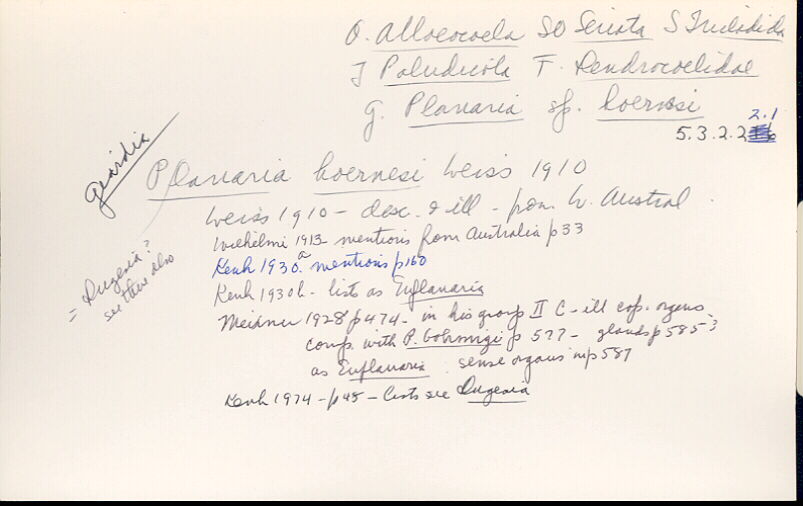 O. Alloeocoela SO Seriata S Tricladida
T Paludicola F. Dendrocoelidae
g. Planaria sp. hoernesi
2.1
5.3.2.2
giardia
Planaria hoernesi Weiss 1910
Weiss 1910 - desc. & ill - from W. Austral.
Wilhelmi 1913 - mentions from Australia p33
Kenk 1930a. mentions p160
Kenk 1930b - lists as Euplanaria
= Dugesia?
see there also
Meixner 1928 p474 - in his group II C - ill cop. organs.
comp. with P. bohmigi p 577 - glands p 585?
as Euplanaria. sense organs in p 587
Kenk 1974 - p 45 - lists see Dugesia